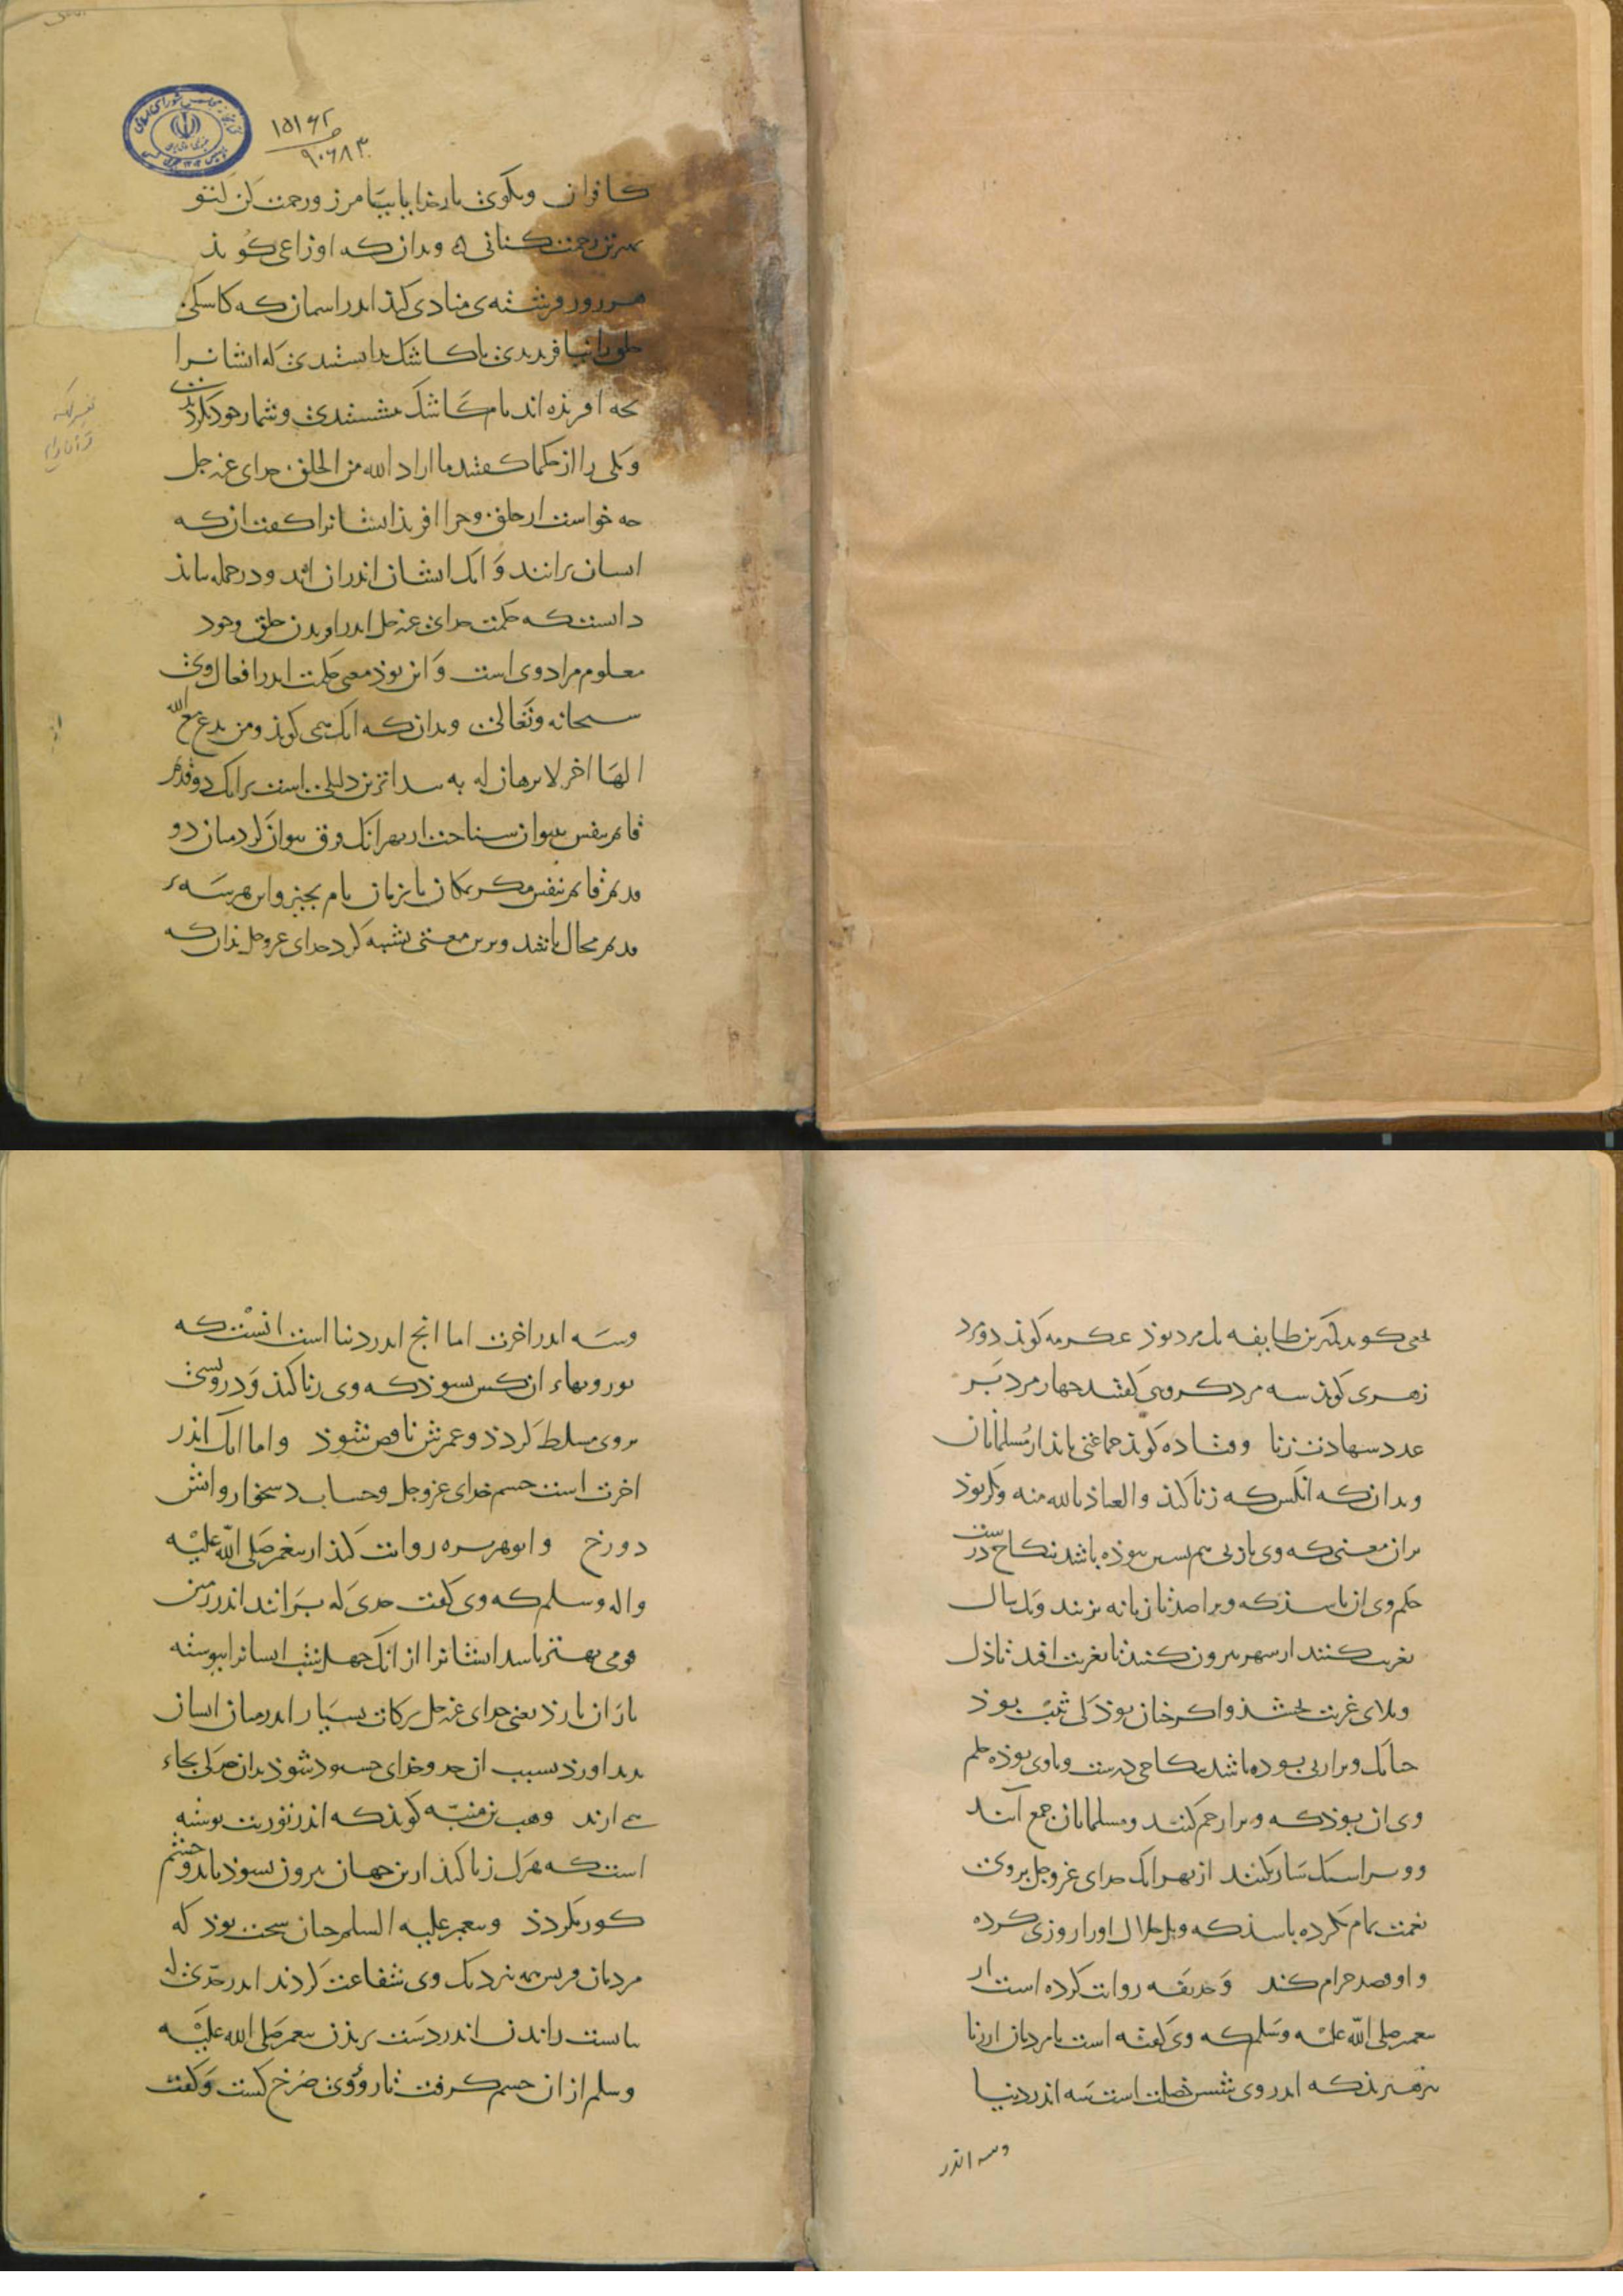 ۱۵۱۶۲
۹۰۶۸۳
کافران وبکوی بارخدایا بیامرز ورحمت کن کتو
بهترین رحمت کنانی وبدان که اوزاعی کوید
هر روز فرشته‌ی منادی کند اندر اسمان که کاشکی
خلق را نیافریدی یا کاشک بدانستندی که ایشانرا
بچه افریذه اند یا کاشک بنشستندی وشمار خود بکردندی
ویکی را از حکما کفتند ما اراد الله من الخلق خدای عز جل
چه خواست از خلق وچرا افرید ایشانرا کفت ان که
ایشان برانند و انک ایشان اندران اند ودر جمله بباید
دانست که حکمت خدای عز جل اندر اوریدن خلق وجود
معلوم مراد وی است و این بوذ معنی حکمت اندر افعال وی
سبحانه وتعالی وبدان که انک می کوید ومن یدع مع الله
الها اخر لا برهان له به پیداترین دلیلی است برانک دو قدیم
قایم بنفس نتوان شناخت از بهر انک فرق نتوان کرد میان دو
قدیم قایم بنفس مکر بمکان یا بزمان یا بچیز واین هر سه بر
قدیم محال باشد وبرین معنی تنبیه کرد خدای عز وجل بدان که
نخعی کوید کمترین طایفه یک مرد بوذ عکرمه کوید دو مرد
زهری کوید سه مرد کروهی کفتند چهار مرد بر
عدد شهادت زنا وقتاده کوید جماعتی باید از مسلمانان
وبدان که انکس که زنا کند والعیاذ بالله منه وبکر بوذ
بران معنی که وی با زنی هم بستر نبوذه باشد بنکاح درست
حکم وی ان باشد که ویرا صد تازیانه بزنند ویک سال
تغریب کنند از شهر بیرون کنند تا بغربت افتد تا ذل
وبلای غربت بچشد واکر چنان بوذ که ثیب بوذ
چنانک ویرا زنی بوده باشد بنکاحی درست وباوی بوذه حکم
وی ان بوذ که ویرا رجم کنند ومسلمانان جمع آیند
وویرا سنکسار بکنند از بهر انک خدای عز وجل بروی
نعمت تمام کرده باشد که ویرا حلال او را روزی کرده
واو قصد حرام کند وحذیفه روایت کرده است از
پیغمبر صلی الله علیه وسلم که وی کفته است یا مردمان از زنا
بپرهیزید که اندر وی شش خصلت است سه اندر دنیا
وسه اندر
وسه اندر اخرت اما انج اندر دنیا است انست که
نور وبهاء ان کس بشود که وی زنا کند ودرویشی
بروی مسلط کردد وعمرش ناقص شود واما انک اندر
اخرت است خشم خدای عز وجل وحساب دشخوار واتش
دوزخ وابوهریره روایت کند از پیغمبر صلی الله علیه
واله وسلم که وی کفت حدی که برانند اندر زمین
قومی بهتر باشد ایشانرا از انک چهل شب ایشانرا پیوسته
باران بارد یعنی خدای عز جل برکات بسیار اندر میان ایشان
پدید اورد بسبب ان حد وخدای خشنود شود بدان حد که بجاء
می ارند وهب بن منبه کوید که اندر توریت نوشته
است که هر که زنا کند ازین جهان بیرون نشود تا بدو چشم
کور نکردد وپیغمبر علیه السلم چنان سخت بوذ که
مردمان قریش همه نزدیک وی شفاعت کردند اندر حدی که
بایست راندن اندر دست بریدن پیغمبر صلی الله علیه
وسلم ازان خشم کرفت تا روی وی سرخ کشت وکفت